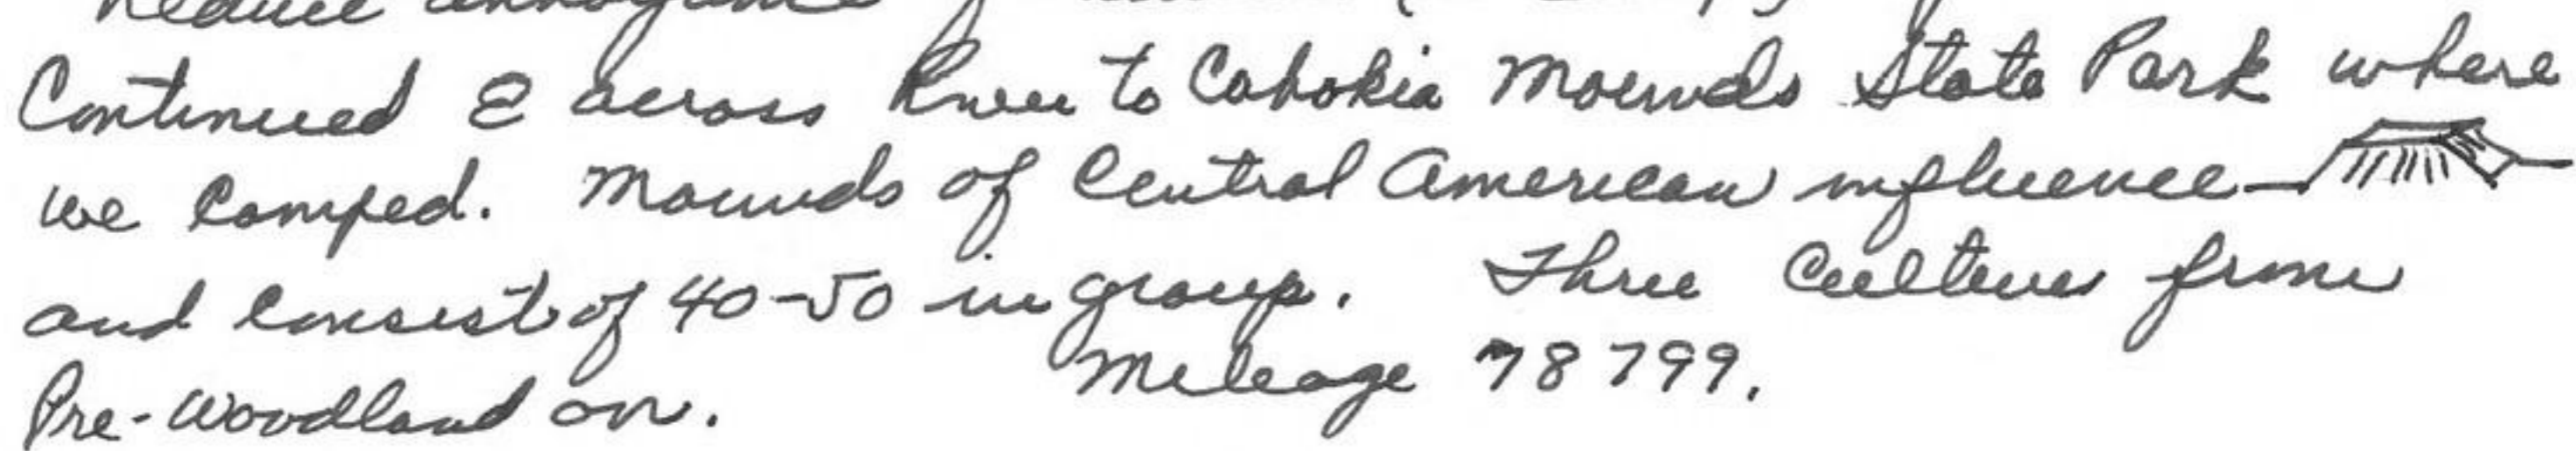 Reduce
Continued E across River to Cahokia Mounds State Park where
we camped. Mounds of Central American influence
and consist of 40-50 in group. Three Cultures from
Pre-Woodland on. Mileage 78799.